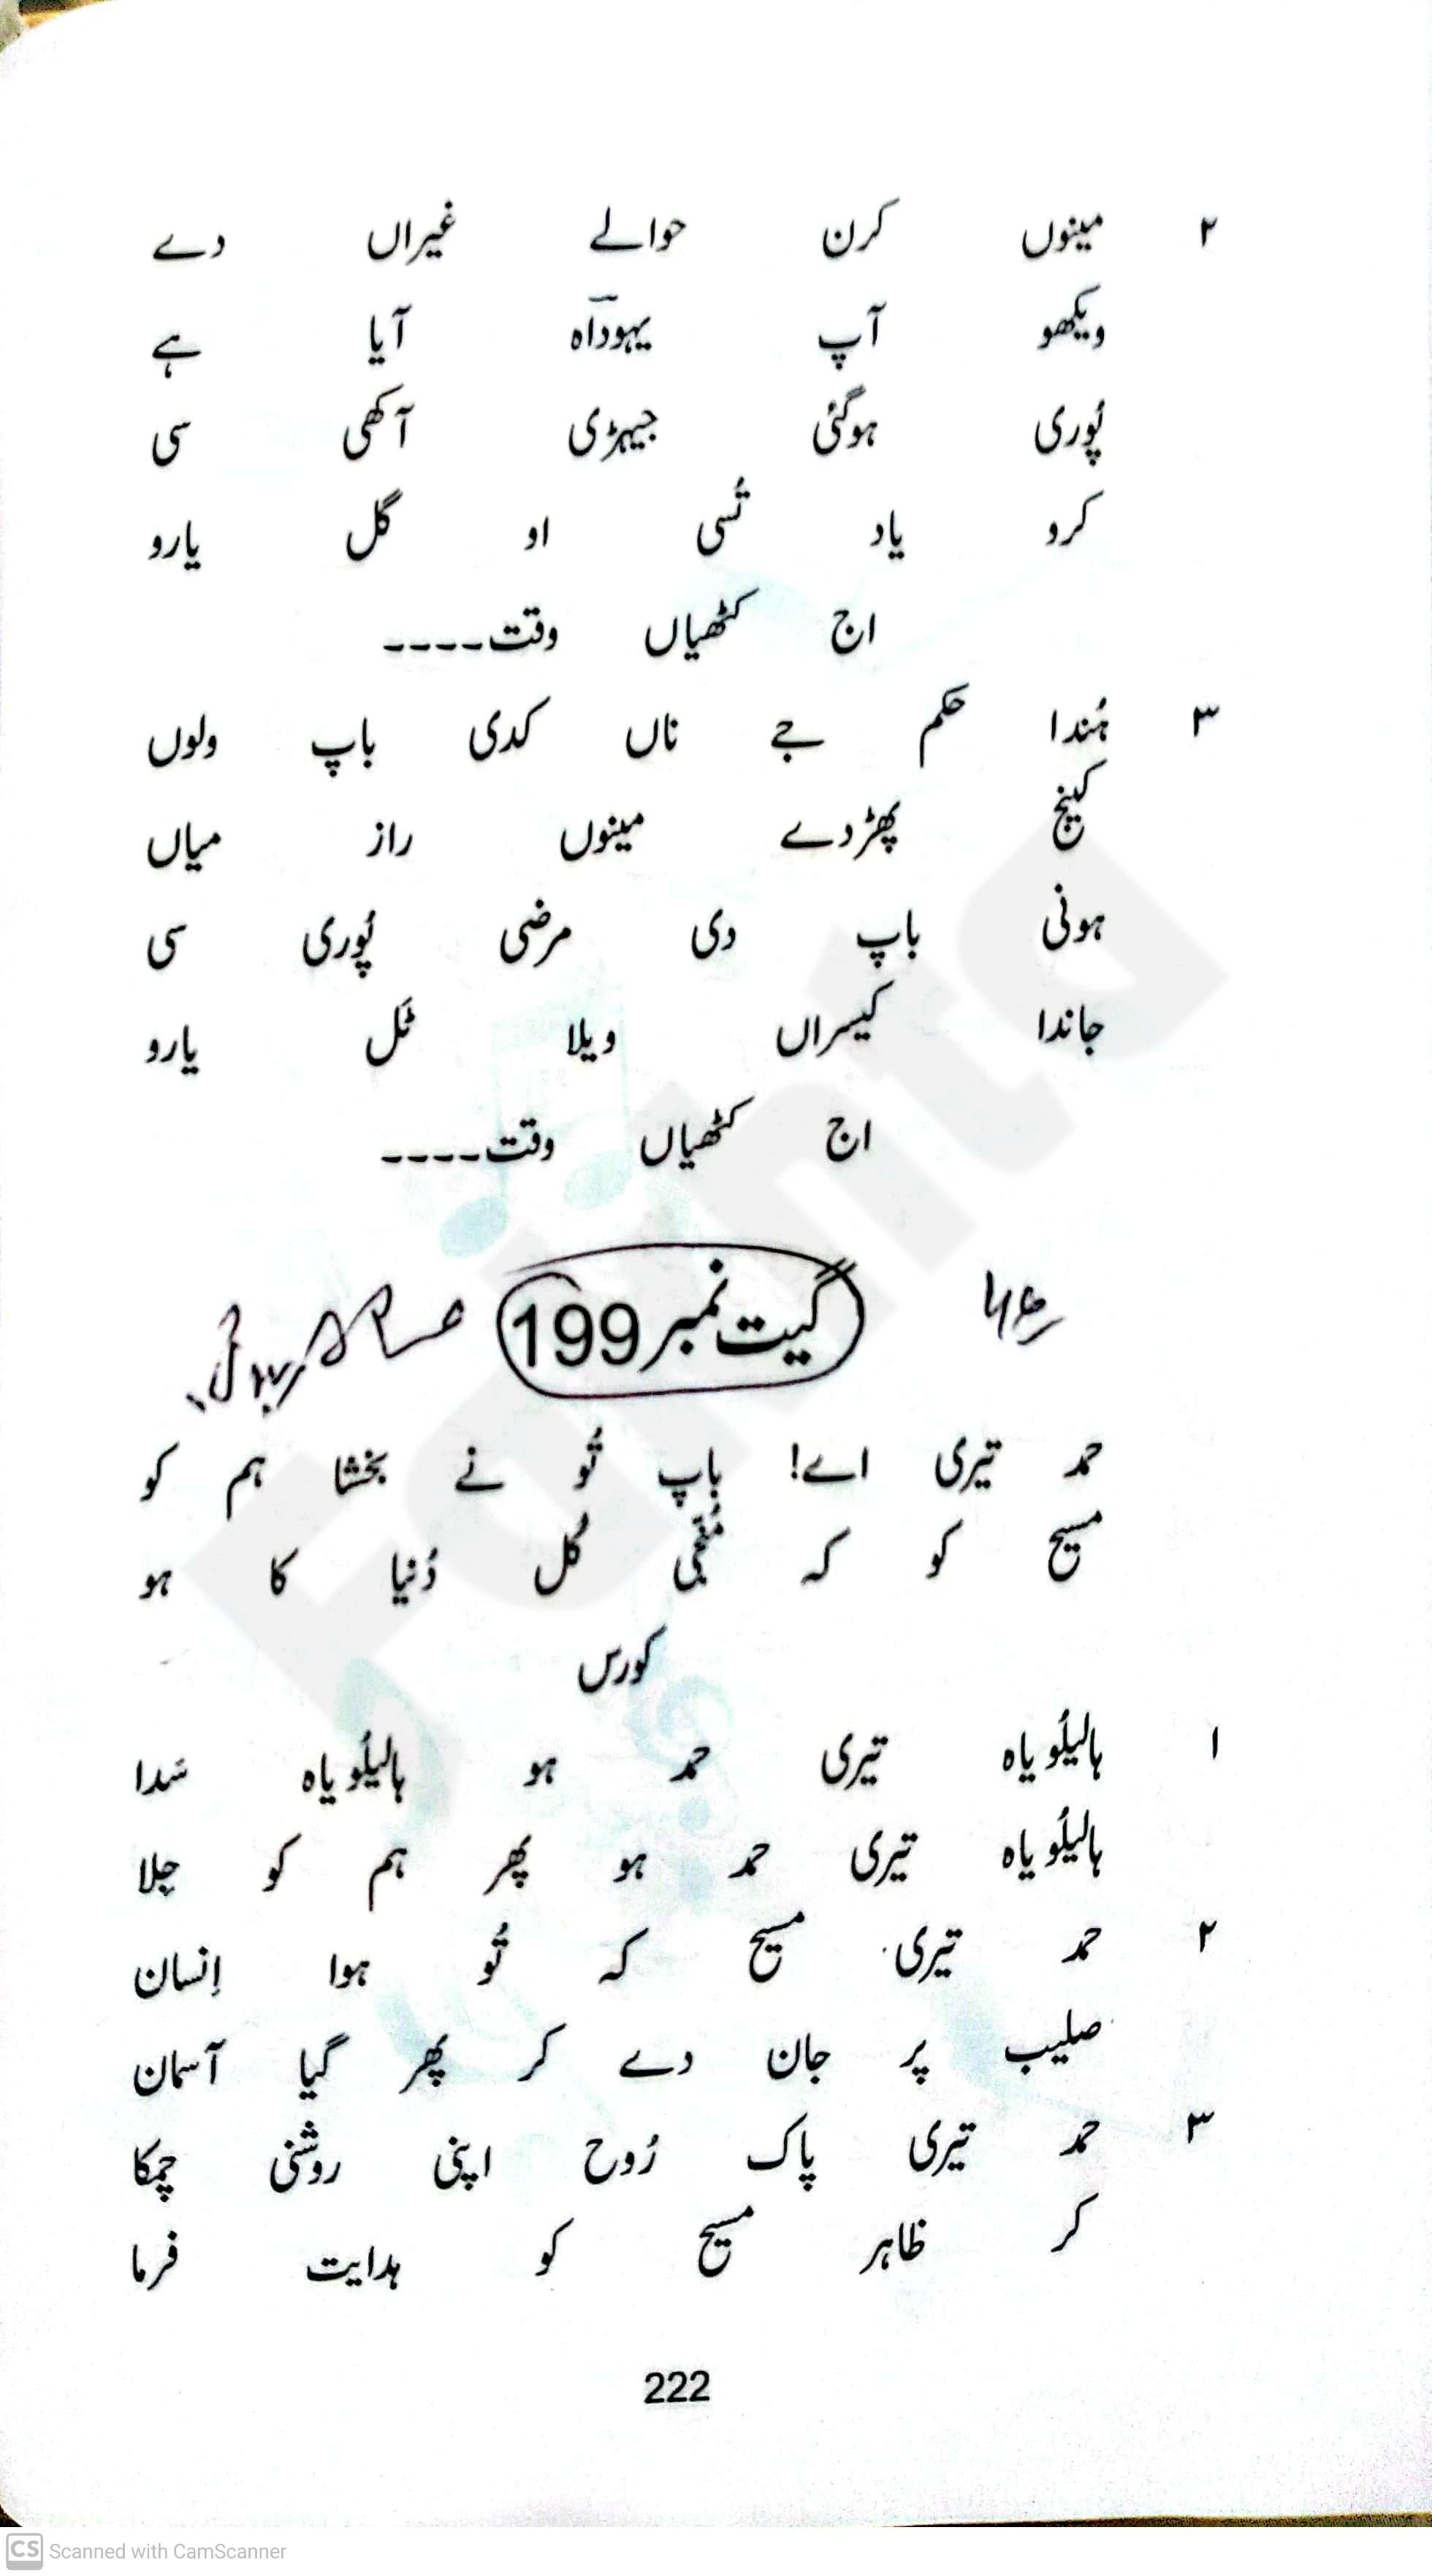 ۲ مینوں کرن حوالے غیراں دے
ویکھو آپ یہوداؔہ آیا ہے
پُوری ہوگئی جیہڑی آکھی سی
کرو یاد تُسی او گل یارو
اج کٹھیاں وقت۔۔۔۔
۳ ہُندا حکم جے ناں کدی باپ ولوں
کینج پھڑدے مینوں راز میاں
ہونی باپ دی مرضی پُوری سی
جاندا کیسراں ویلا ٹَل یارو
اج کٹھیاں وقت۔۔۔۔
گیت نمبر 199
حمد تیری اے! باپ تُو نے بخشا ہم کو
مسیح کو کہ مُنّجی کُل دُنیا کا ہو
کورس
۱ ہالیلُویاہ تیری حمد ہو ہالیلُویاہ سَدا
ہالیلُویاہ تیری حمد ہو پھِر ہم کو جِلا
۲ حمد تیری مسیح کہ تُو ہوا اِنسان
صلیب پر جان دے کر پھِر گیا آسمان
۳ حمد تیری پاک رُوح اپنی روشنی چمکا
کر ظاہر مسیح کو ہدایت فرما
222
Fakhta
CS Scanned with CamScanner